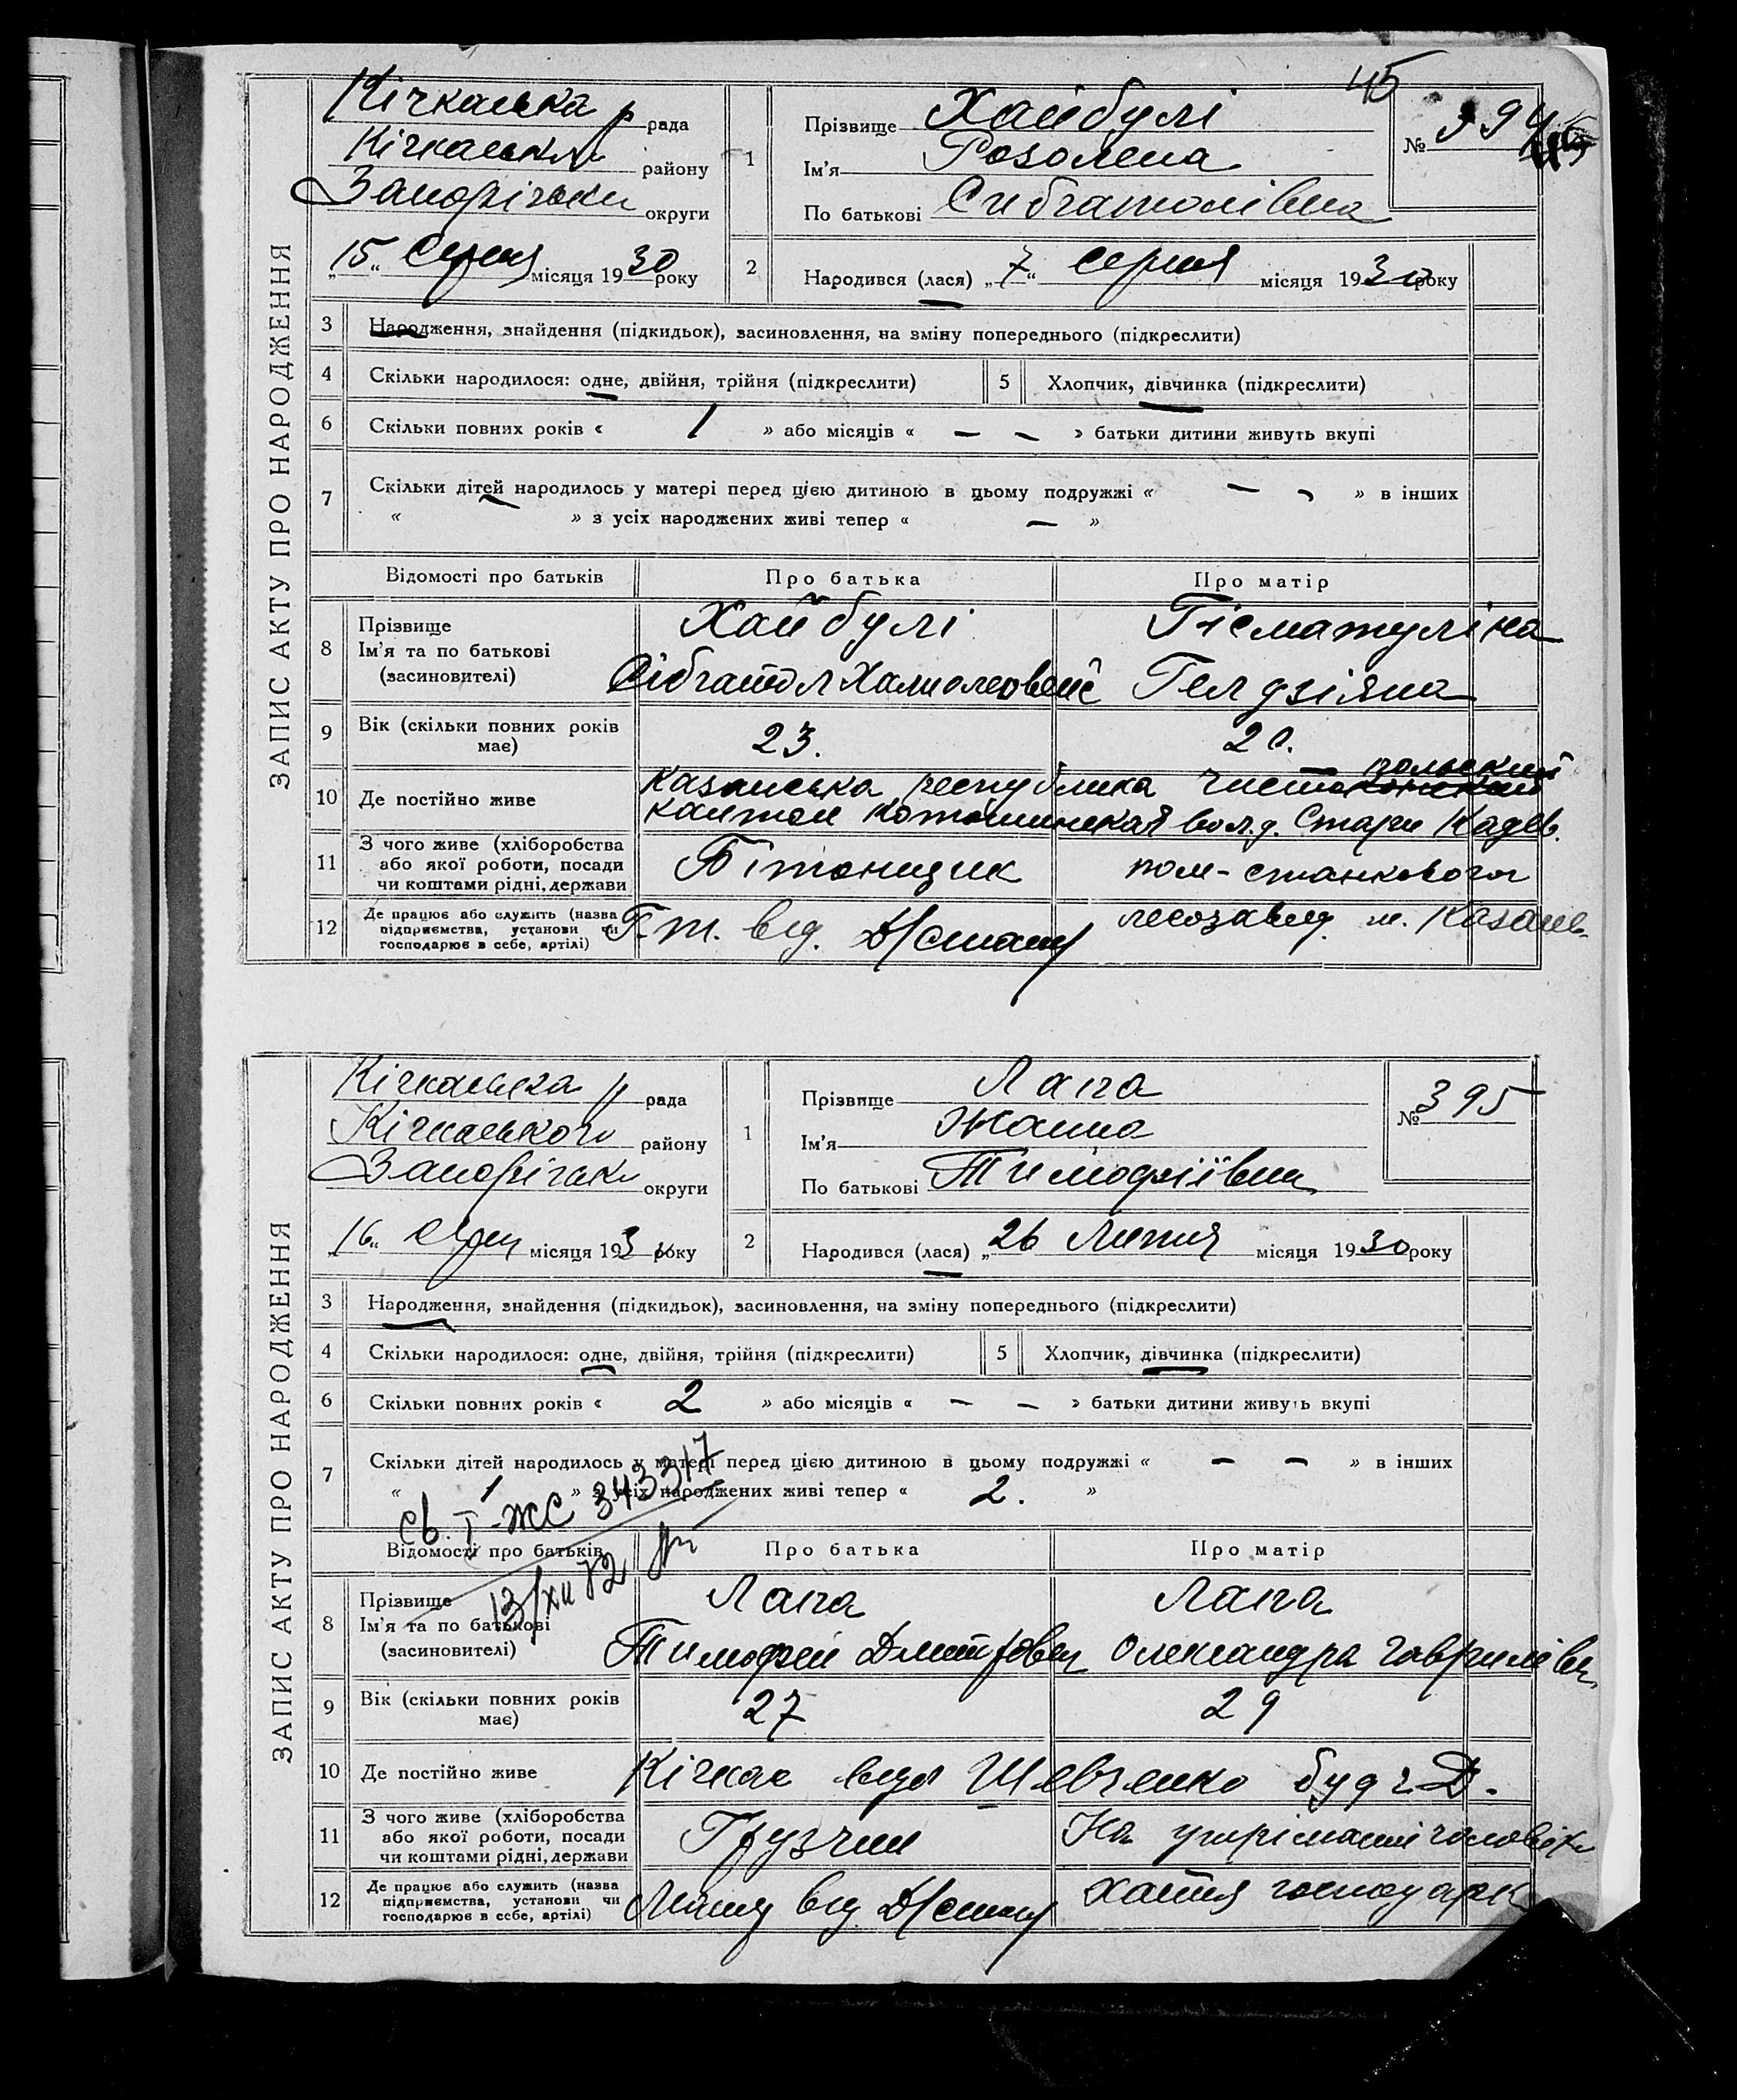 45
ЗАПИС АКТУ ПРО НАРОДЖЕННЯ
Кічкаська р рада
Кічкаськ району
Запоріськ округи
„15„ Серпня місяця 1930 року
1
Прізвище Хайбулі
Ім'я Розолена
По батькові Сибгатолівна
№ 394
2
Народився (лася) „7„ серпня місяця 1930 року
3 Народження, знайдення (підкидьок), засиновлення, на зміну попереднього (підкреслити)
4 Скільки народилося: одне, двійня, трійня (підкреслити) 5 Хлопчик, дівчинка (підкреслити)
6 Скільки повних років « 1 » або місяців « — — » батьки дитини живуть вкупі
7 Скільки дітей народилось у матері перед цією дитиною в цьому подружжі « — — » в інших
« — » з усіх народжених живі тепер « — »
Відомості про батьків Про батька Про матір
8 Прізвище
Ім'я та по батькові
(засновителі)
Хайбулі
Сібгатол
Гісматуліна
9 Вік (скільки повних років має) 23. 20.
10 Де постійно живе Казанська республика чисто польский
кантон вол. д. Стари Кадев.
11 З чого живе (хліборобства
або якої роботи, посади
чи коштами рідні, держави
Бітонщик пом-станкового
12 Де працює або служить (назва
підприємства, установи чи
господарює в себе, артілі)
Г.т. від. Д/стану лесозавод м. Казань
ЗАПИС АКТУ ПРО НАРОДЖЕННЯ
Кічкаська р рада
Кічкаського району
Запоріськ округи
„16„ серпн місяця 193 року
1
Прізвище Лапа
Ім'я Жанна
По батькові Тимофіївна
№ 395
2
Народився (лася) „26 Липня місяця 1930 року
3 Народження, знайдення (підкидьок), засиновлення, на зміну попереднього (підкреслити)
4 Скільки народилося: одне, двійня, трійня (підкреслити) 5 Хлопчик, дівчинка (підкреслити)
6 Скільки повних років « 2 » або місяців « — — » батьки дитини живуть вкупі
7 Скільки дітей народилось у матері перед цією дитиною в цьому подружжі « — — » в інших
« 1 » з усіх народжених живі тепер « 2. »
св. I-ЖС 343317
13/XII 72
Відомості про батьків Про батька Про матір
8 Прізвище
Ім'я та по батькові
(засиновителі)
Лапа
Тимофей Дмитрович
Лапа
Олександра Гаврилівн
9 Вік (скільки повних років має) 27 29
10 Де постійно живе Кічкас вулл Шевченко буд ч Д.
11 З чого живе (хліборобства
або якої роботи, посади
чи коштами рідні, держави
Грузчик На утріманні чоловіка
12 Де працює або служить (назва
підприємства, установи чи
господарює в себе, артілі)
від Д/стану хатня господарк